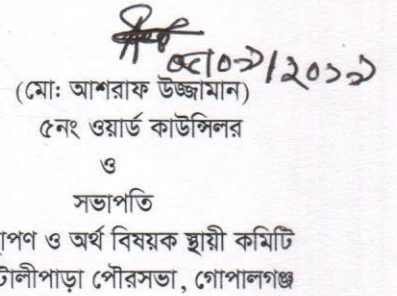 ০৫/০২/২০১১
(মো: আশরাফ উজ্জামান)
৫নং ওয়ার্ড কাউন্সিলর
ও
সভাপতি
াপণ ও অর্থ বিষয়ক স্থায়ী কমিটি
টালীপাড়া পৌরসভা, গোপালগঞ্জ